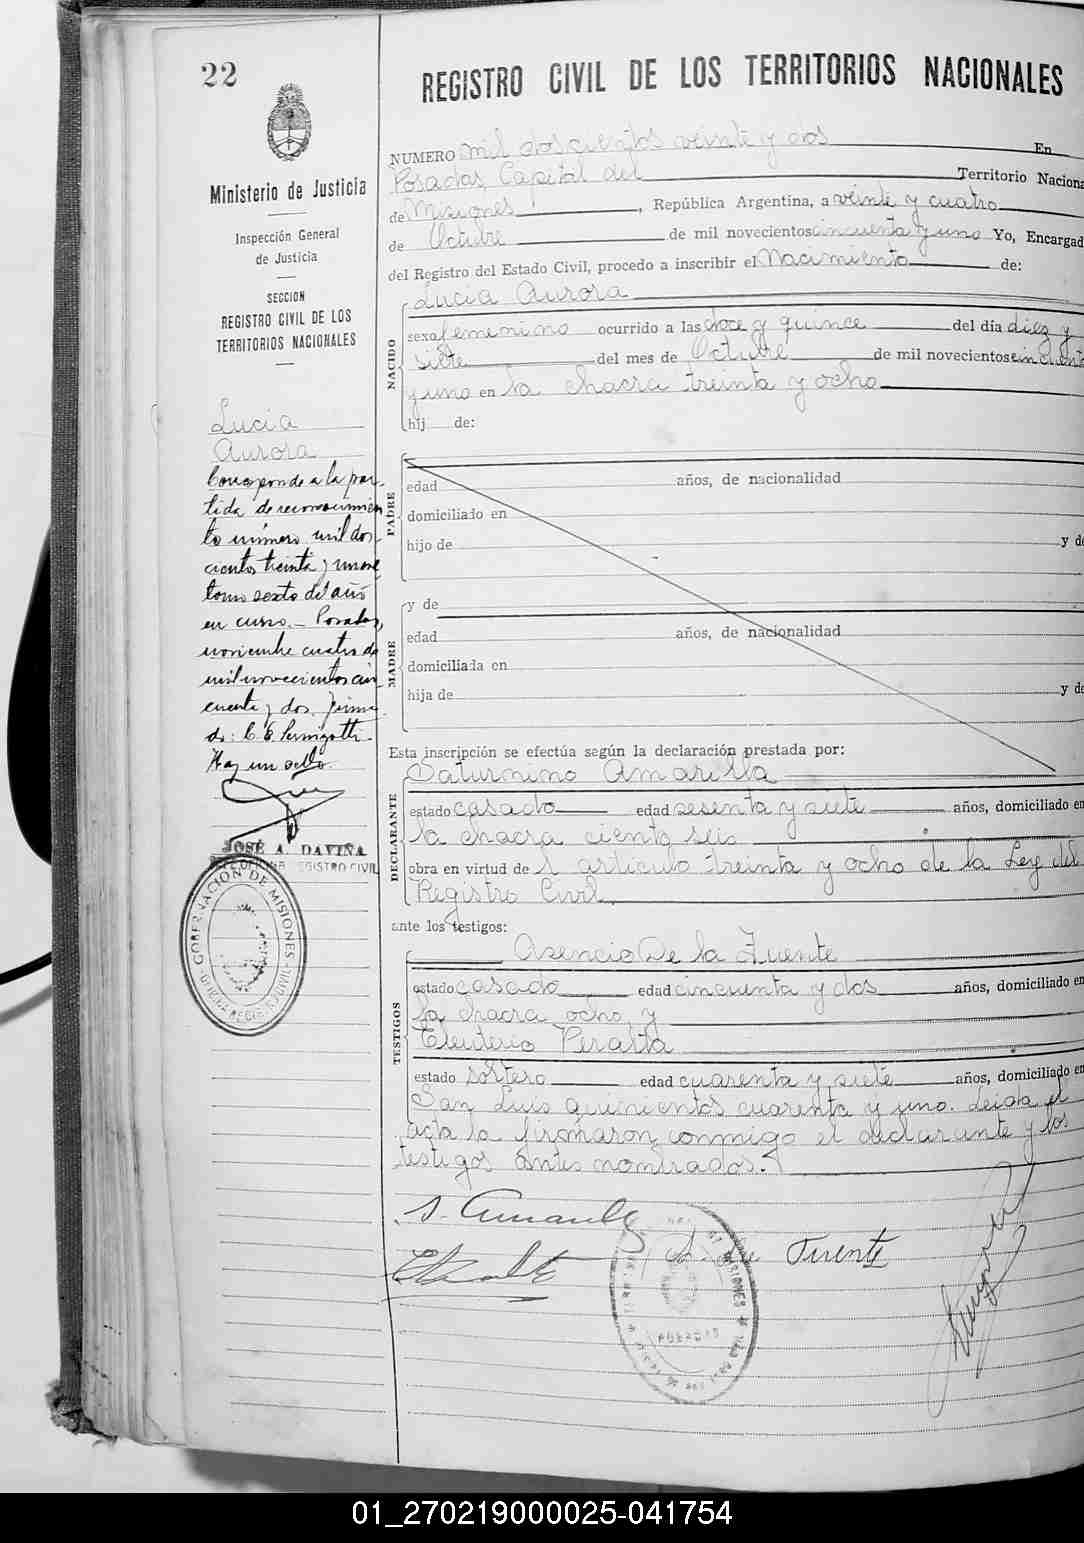 22
REGISTRO CIVIL DE LOS TERRITORIOS NACIONALES
Ministerio de Justicia
Inspección General
de Justicia
SECCION
REGISTRO CIVIL DE LOS
TERRITORIOS NACIONALES
Lucia
Aurora
Corresponde a la par-
tida de reconocimien
to número mil dos-
cientos treinta y nueve
tomo sexto del año
en curso.- Posadas,
noviembre cuatro de
mil novecientos cin
cuenta y dos. Firma
do: C. E.
Hay un sello.
JOSÉ A. DAVIÑA
REGISTRO CIVIL
GOBERNACIÓN DE MISIONES
NUMERO mil doscientos veinte y dos En
Posadas, Capital del Territorio Naciona
de Misiones, República Argentina, a veinte y cuatro
de Octubre de mil novecientos cincuenta y uno Yo, Encargad
del Registro del Estado Civil, procedo a inscribir el Nacimiento de:
NACIDO
Lucia Aurora
sexo femenino ocurrido a las doce y quince del día diez y
siete del mes de Octubre de mil novecientos cincuenta
y uno en la chacra treinta y ocho
hij de:
PADRE
edad años, de nacionalidad
domiciliado en
hijo de y de
MADRE
y de
edad años, de nacionalidad
domiciliada en
hija de y de
Esta inscripción se efectúa según la declaración prestada por:
DECLARANTE
Saturnino Amarilla
estado casado edad sesenta y siete años, domiciliado en
la chacra ciento seis
obra en virtud de l articulo treinta y ocho de la Ley del
Registro Civil.
ante los testigos:
TESTIGOS
Asencio De la Fuente
estado casado edad cincuenta y dos años, domiciliado en
la chacra ocho, y
Eleuterio Peralta
estado soltero edad cuarenta y siete años, domiciliado en
San Luis quinientos cuarenta y uno. Leida el
acta la firmaron, conmigo el declarante y los
testigos antes nombrados.
S. Amarilla
Fuente
MISIONES
POSADAS
01_270219000025-041754